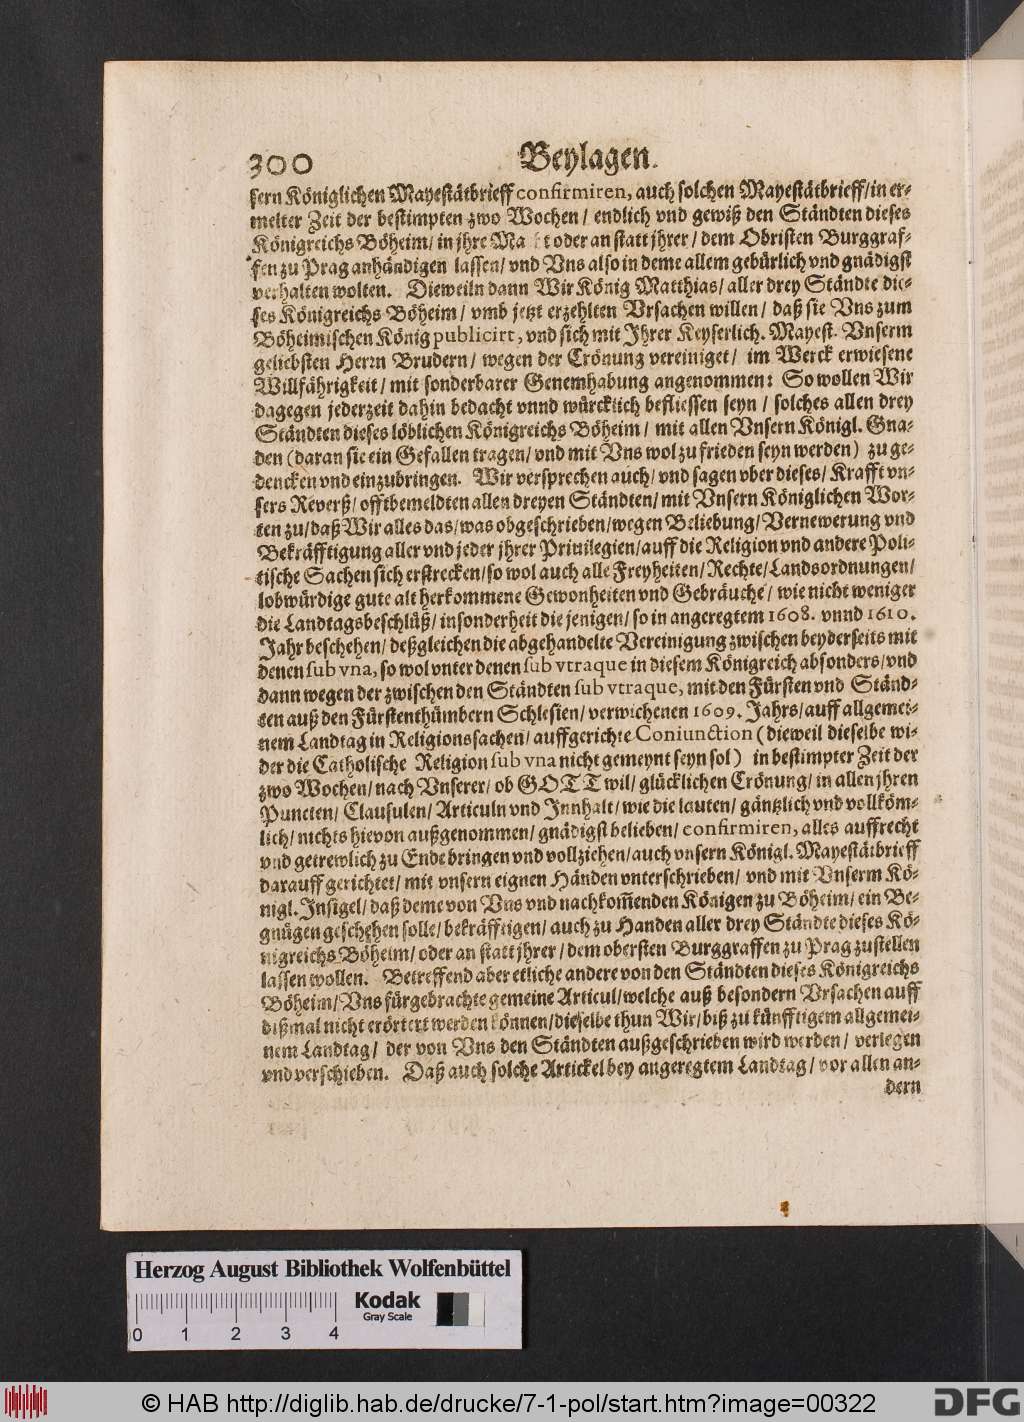 300 Beylagen.
sern Königlichen Mayestätbrieff confirmiren, auch solchen Mayestätbrieff/ in er-
melter Zeit der bestimpten zwo Wochen/ endlich vnd gewiß den Ständten dieses
Königreichs Böheim/ in jhre oder an statt jhrer/ dem Obristen Burggraf-
fen zu Prag anhändigen lassen/ vnd Vns also in deme allem gebürlich vnd gnädigst
verhalten wolten. Dieweiln dann Wir König Matthias/ aller drey Ständte die-
ses Königreichs Böheim/ vmb jetzt erzehlten Vrsachen willen/ daß sie Vns zum
Böheimischen König publicirt, vnd sich mit Jhrer Keyserlich. Mayest. Vnserm
geliebsten Herrn Brudern/ wegen der Crönung vereiniget/ im Werck erwiesene
Willfährigkeit/ mit sonderbarer Genemhabung angenommen: So wollen Wir
dagegen jederzeit dahin bedacht vnnd würcklich befliessen seyn/ solches allen drey
Ständten dieses löblichen Königreichs Böheim/ mit allen Vnsern Königl. Gna-
den (daran sie ein Gefallen tragen/ vnd mit Vns wol zu frieden seyn werden) zu ge-
dencken vnd einzubringen. Wir versprechen auch/ vnd sagen vber dieses/ Krafft vn-
sers Reverß/ offtbemeldten allen dreyen Ständten/ mit Vnsern Königlichen Wor-
ten zu/ daß Wir alles das/ was obgeschrieben/ wegen Beliebung/ Vernewerung vnd
Bekräfftigung aller vnd jeder jhrer Priuilegien/ auff die Religion vnd andere Poli-
tische Sachen sich erstrecken/ so wol auch alle Freyheiten/ Rechte/ Landsordnungen/
lobwürdige gute alt herkommene Gewonheiten vnd Gebräuche/ wie nicht weniger
die Landtagsbeschlüß/ insonderheit die jenigen/ so in angeregtem 1608. vnnd 1610.
Jahr beschehen/ deßgleichen die abgehandelte Vereinigung zwischen beyderseits mit
denen sub vna, so wol vnter denen sub vtraque in diesem Königreich absonders/ vnd
dann wegen der zwischen den Ständten sub vtraque, mit den Fürsten vnd Ständ-
ten auß den Fürstenthümbern Schlesien/ verwichenen 1609. Jahrs/ auff allgemei-
nem Landtag in Religionssachen/ auffgerichte Coniunction (dieweil dieselbe wi-
der die Catholische Religion sub vna nicht gemeynt seyn sol) in bestimpter Zeit der
zwo Wochen/ nach Vnserer/ ob GOTT wil/ glücklichen Crönung/ in allen jhren
Puncten/ Clausulen/ Articuln vnd Jnnhalt/ wie die lauten/ gäntzlich vnd vollköm-
lich/ nichts hievon außgenommen/ gnädigst belieben/ confirmiren, alles auffrecht
vnd getrewlich zu Ende bringen vnd vollziehen/ auch vnsern Königl. Mayestätbrieff
darauff gerichtet/ mit vnsern eignen Händen vnterschrieben/ vnd mit Vnserm Kö-
nigl. Jnsigel/ daß deme von Vns vnd nachkom̃enden Königen zu Böheim/ ein Be-
gnügen geschehen solle/ bekräfftigen/ auch zu Handen aller drey Ständte dieses Kö-
nigreichs Böheim/ oder an statt jhrer/ dem obersten Burggraffen zu Prag zustellen
lassen wollen. Betreffend aber etliche andere von den Ständten dieses Königreichs
Böheim/ Vns fürgebrachte gemeine Articul/ welche auß besondern Vrsachen auff
dißmal nicht erörtert werden können/ dieselbe thun Wir/ biß zu künfftigem allgemei-
nem Landtag/ der von Vns den Ständten außgeschrieben wird werden/ verlegen
vnd verschieben. Daß auch solche Artickel bey angeregtem Landtag/ vor allen an-
dern
Herzog August Bibliothek Wolfenbüttel
Kodak
Gray Scale
0 1 2 3 4
© HAB http://diglib.hab.de/drucke/7-1-pol/start.htm?image=00322
DFG